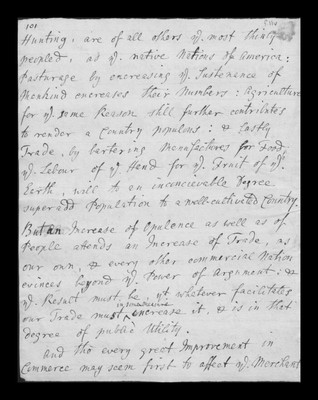 101
Hunting, are of all others yͤ. most thinly
peopled, as yͤ. native Nations of America:
Pasturage by encreasing yͤ. Sustenance of
Mankind encreases their Numbers: Agriculture
for yͤ. same Reason still further contributes
to render a Country populous: & Lastly
Trade, by bartering Manufactures for Food,
yͤ. Labour of yͤ. Hand for yͤ. Fruit of yͤ.
Earth, will to an inconceivable Degree
superadd Population to a well-cultivated Country.
But an Increase of Opulence as well as of
People attends an Increase of Trade, as
our own, & every other commercial Nation
evinces beyond yͤ. Power of Argument: &
yͤ. Result must be, yͭ whatever facilitates
our Trade must increase it, & is in that
degree of public Utility.
And tho every great Improvement in
Commerce may seem first to affect yͤ. Merchant